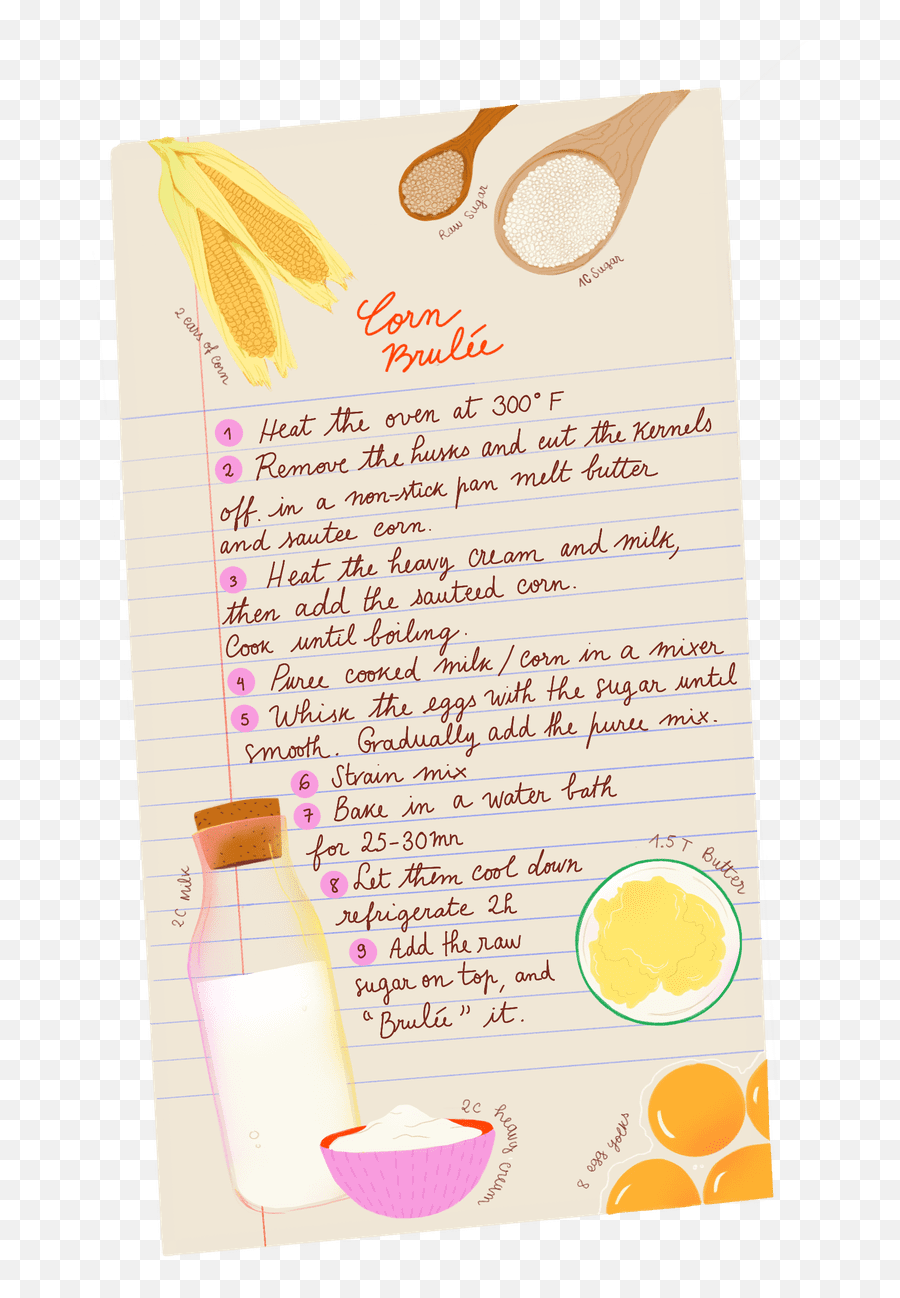 Raw Sugar
1C Sugar
2 ears of corn
Corn
Brulée
1 Heat the oven at 300° F
2 Remove the husks and cut the Kernels
off. in a non-stick pan melt butter
and sautee corn.
3 Heat the heavy cream and milk,
then add the sauteed corn.
Cook until boiling.
4 Puree cooked milk/corn in a mixer
5 Whisk the eggs with the sugar until
smooth. Gradually add the puree mix.
6 Strain mix
7 Bake in a water bath
for 25-30mn
8 Let them cool down
refrigerate 2h
9 Add the raw
sugar on top, and
"Brulée" it.
2C Milk
1.5T Butter
2C heavy cream
8 egg yolks